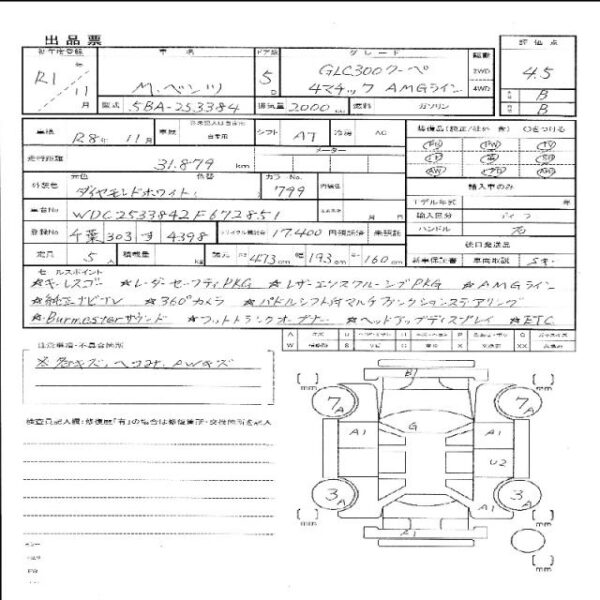 出品票
初年度登録 車名 ドア数 グレード 駆動 評価点
R1年/11月 M.ベンツ 5D GLC300クーペ 4マチック AMGライン 2WD 4WD 4.5
型式 5BA-253384 排気量 2000 燃料 ガソリン B
B
車検 R8年11月 車歴 自家用 シフト AT 冷房 AC 装備品(純正/社外 含) ○をつける
走行距離 31.879 km メーター
外装色 元色 ダイヤモンドホワイト 色替 カラーNo. 799 内装色 輸入車のみ
モデル年式 年
車台No WDC2533842F672851 輸入区分 ディーラ
登録No 千葉 303 す 4398 リサイクル預託金 17.400 円 預託済 未預託 ハンドル 右
定員 5人 積載量 kg 諸元 長 473 cm 幅 193 cm 高 160 cm 後日発送品
新車保証書 車両取説
セールスポイント
☆キーレスゴー ☆レーダーセーフティPKG ☆レザーエクスクルーシブPKG ☆AMGライン
☆純正ナビTV ☆360°カメラ ☆パドルシフト付マルチファンクションステアリング
☆Burmesterサウンド ☆フットトランクオープナー ☆ヘッドアップディスプレイ ☆ETC
注意事項・不具合箇所
※各キズ、ヘコみ、AWキズ
検査員記入欄:修復歴「有」の場合は修復箇所・交換箇所を記入
B1
[ ] mm [ ] mm
7 A 7 A
A1 G A1
U2
3 A 3 A
A1
A1
[ ] mm [ ] mm